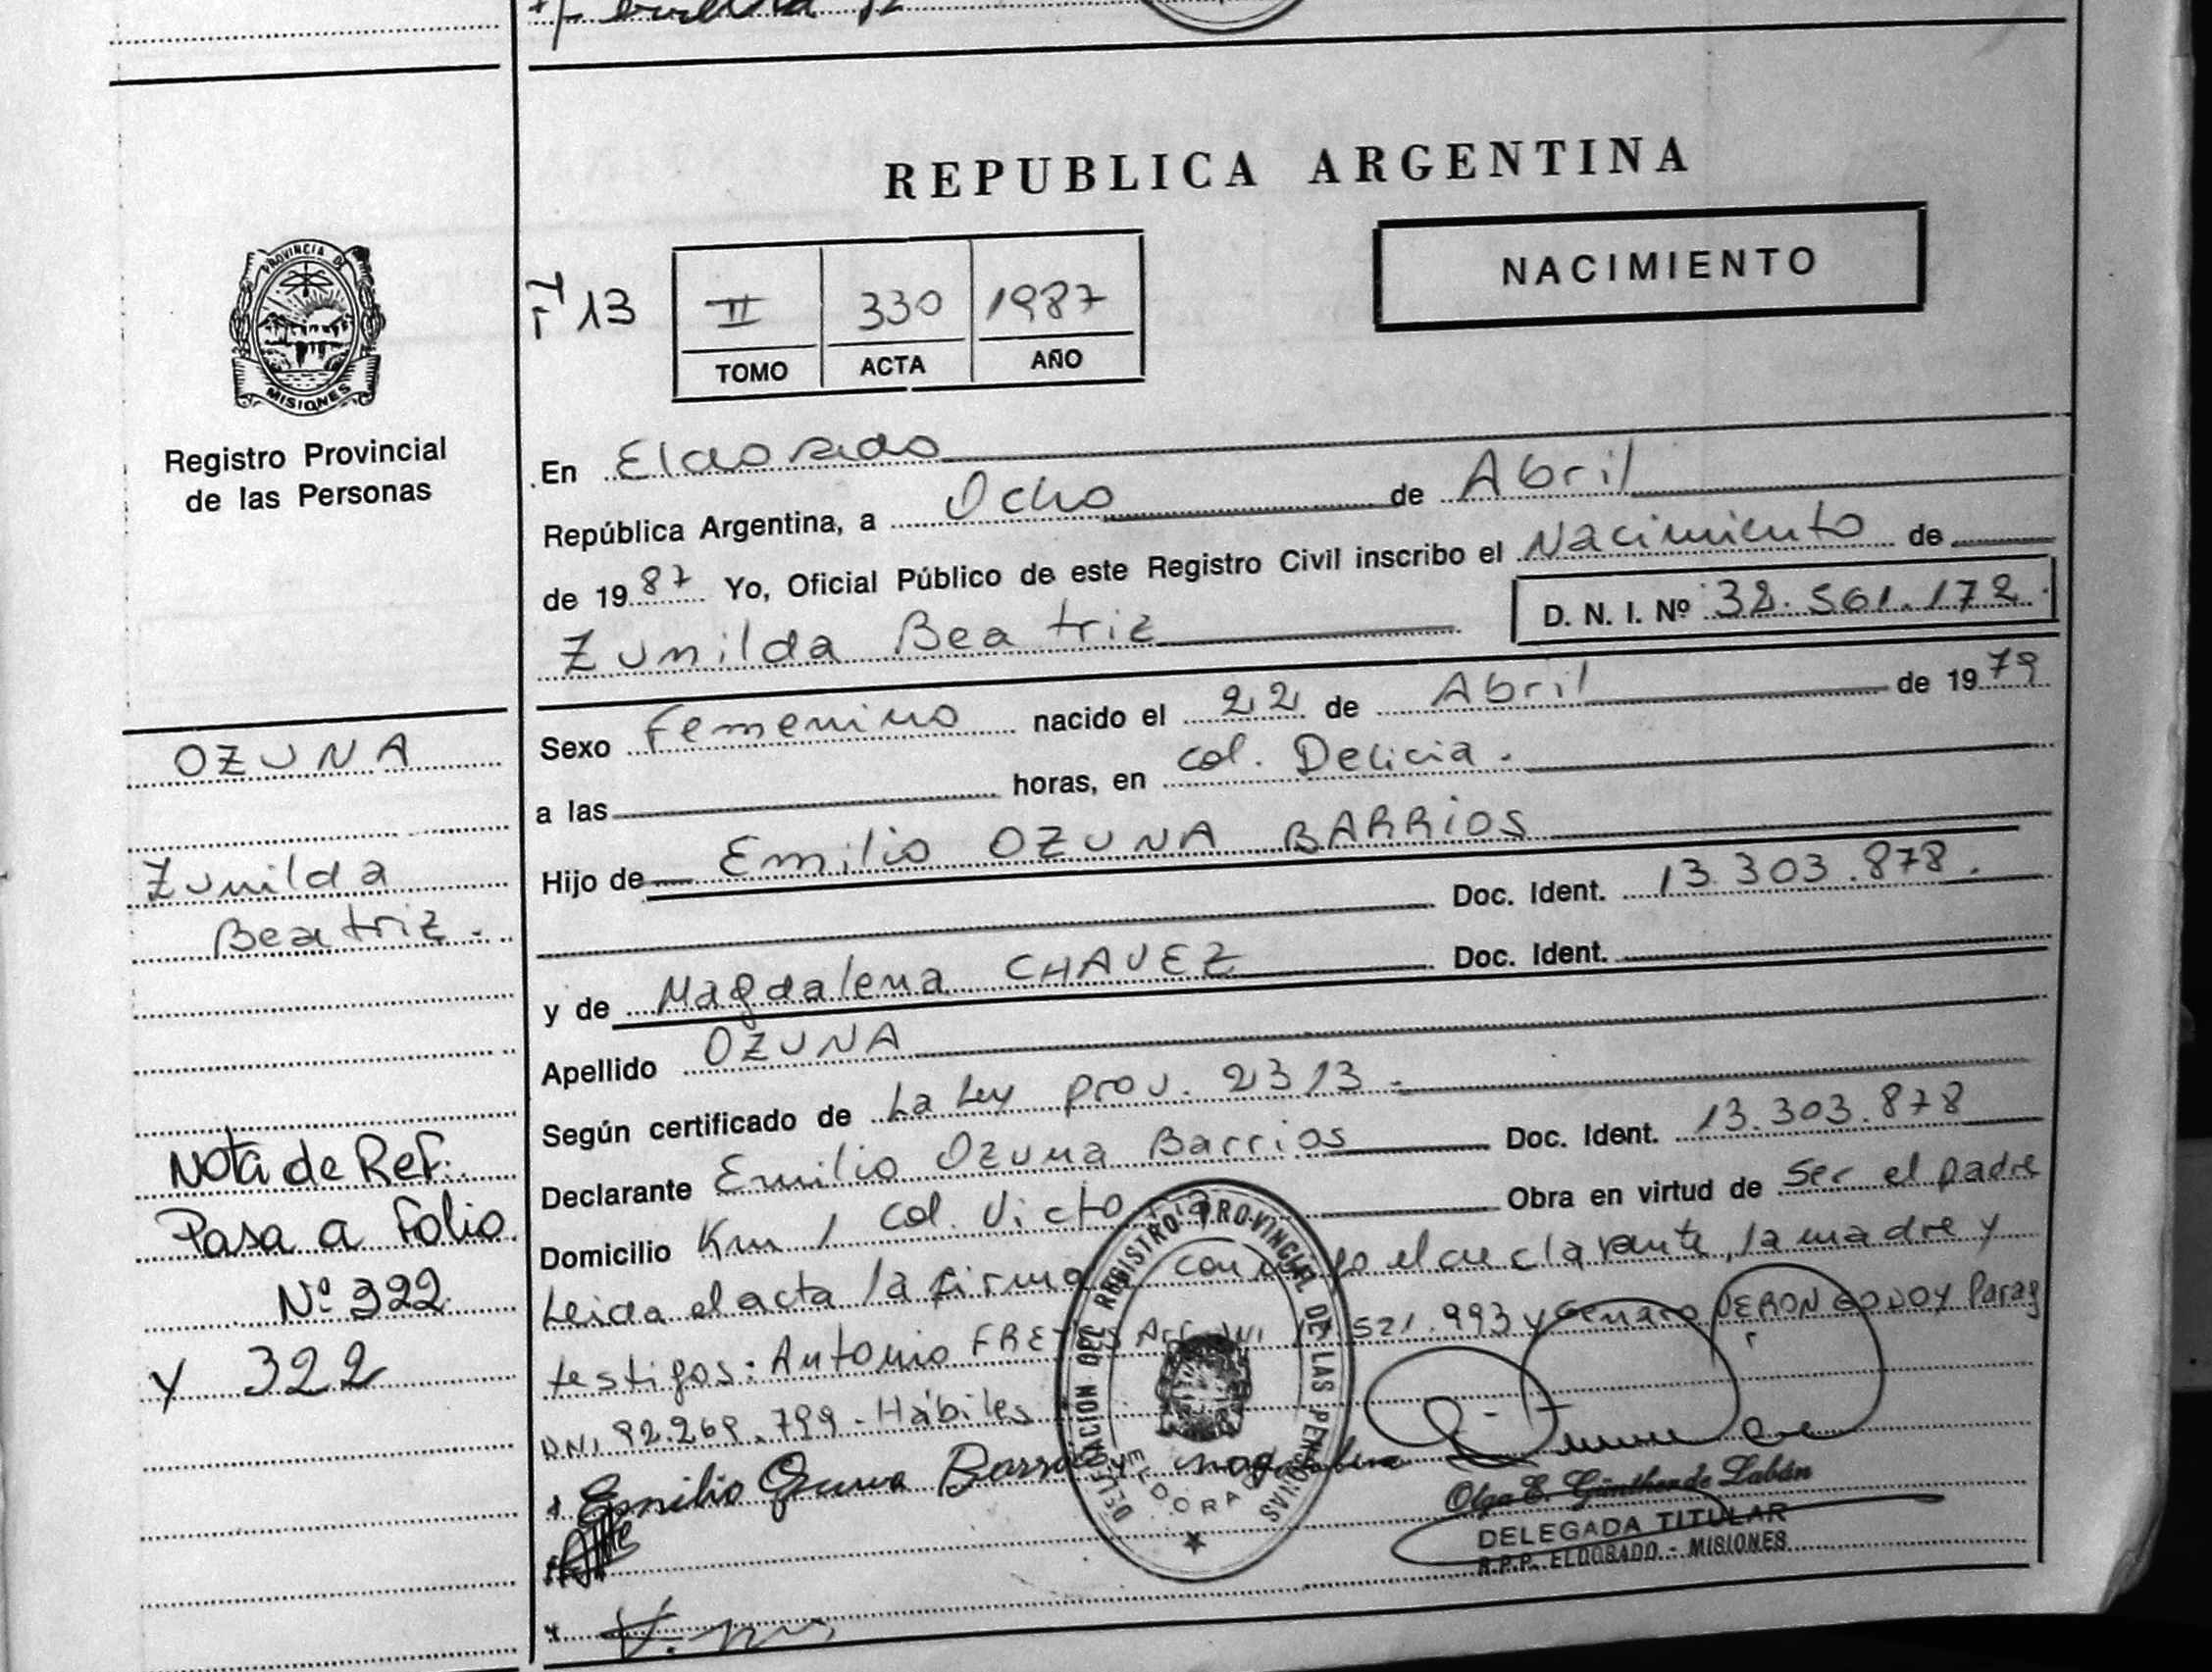 REPUBLICA ARGENTINA
NACIMIENTO
PROVINCIA DE
MISIONES
Registro Provincial
de las Personas
13
II 330 1987
TOMO ACTA AÑO
En Eldorado
República Argentina, a Ocho de Abril
de 1987 Yo, Oficial Público de este Registro Civil inscribo el Nacimiento de
Zunilda Beatriz D. N. I. Nº 32.501.172
Sexo Femenino nacido el 22 de Abril de 1979
a las horas, en col. Delicia.
Hijo de Emilio OZUNA BARRIOS
Doc. Ident. 13.303.878.
y de Magdalena CHAVEZ Doc. Ident.
Apellido OZUNA
Según certificado de La Ley prov. 2313.-
Declarante Emilio Ozuna Barrios Doc. Ident. 13.303.878
Domicilio Km 1 Col. Victoria Obra en virtud de ser el padre
Leida el acta la firman conmigo el declarante, la madre y
testigos: Antonio 521.993 y Genaro VERON GODOY Parag
DNI 92.269.799 - Hábiles
Emilio Ozuna Barrios magdalena
OZUNA
Zunilda
Beatriz.-
Nota de Ref:
Pasa a Folio
Nº 322
y 322
DELEGACION DEL REGISTRO PROVINCIAL DE LAS PERSONAS
ELDORADO
Olga E. Günther de Labán
DELEGADA TITULAR
R.P.P. ELDORADO - MISIONES